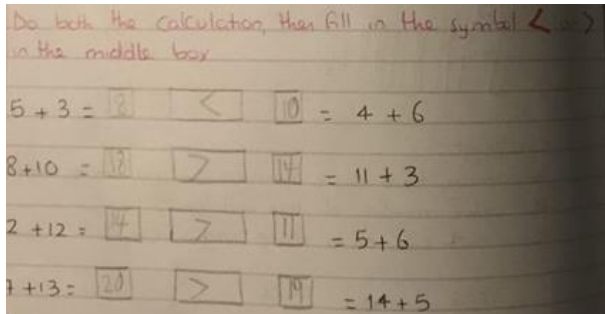 Do both the calculation, then fill in the symbol < or >
in the middle box
5 + 3 = 8 < 10 = 4 + 6
8 + 10 = 18 > 14 = 11 + 3
2 + 12 = 14 > 11 = 5 + 6
7 + 13 = 20 > 19 = 14 + 5